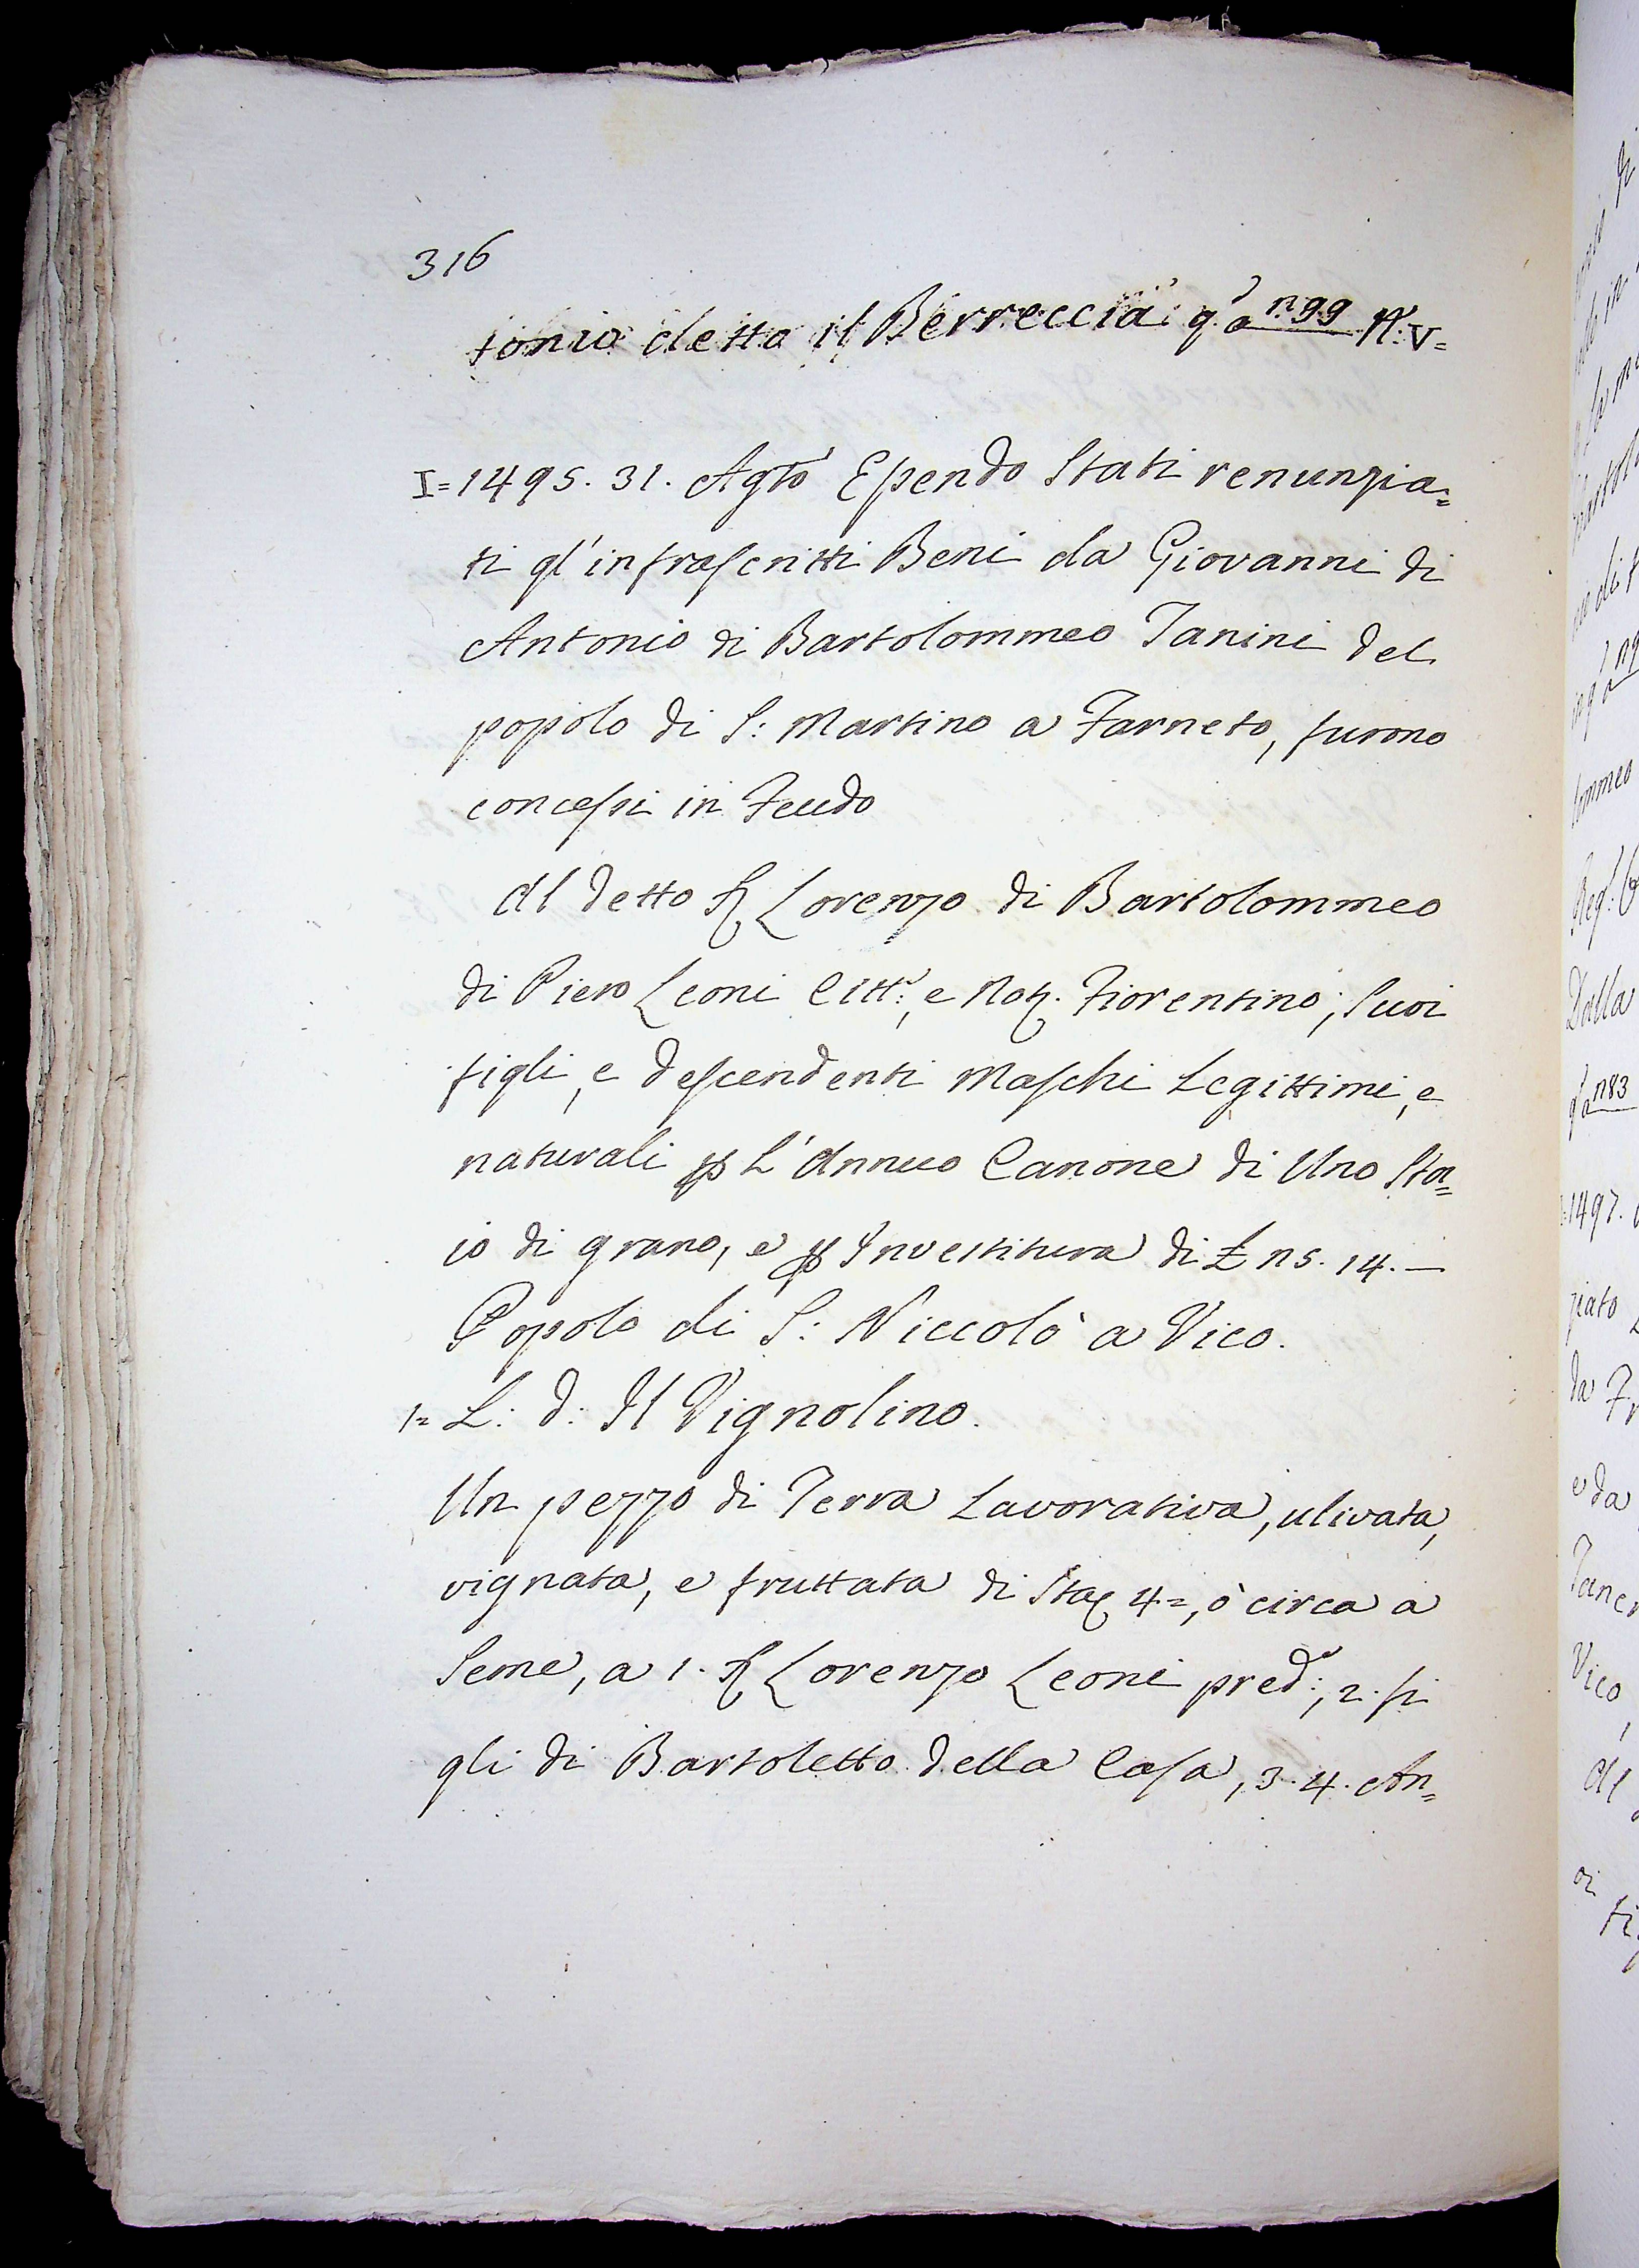 316
tonio detto il Berreccia q.o n.99 N. V=
I= 1495. 31. Agto Essendo Stati renunzia=
ti gl'infrascritti Beni da Giovanni di
Antonio di Bartolommeo Tanini del
popolo di S: Martino a Farneto, furono
concessi in Feudo
Al detto Sr Lorenzo di Bartolommeo
di Piero Leoni Citt:, e Not. Fiorentino; Suoi
figli, e descendenti Maschi Legittimi, e
naturali p L'Annuo Canone di Uno Sta=
io di grano, e p Investitura di £ ns. 14. —
Popolo di S: Niccolò a Vico.
1= L: d: Il Vignolino.
Un pezzo di Terra Lavorativa, ulivata,
vignata, e fruttata di Sta 4=, ò circa a
Seme, a 1. Sr Lorenzo Leoni pred:, 2. fi
gli di Bartoletto della Casa, 3. 4. An=